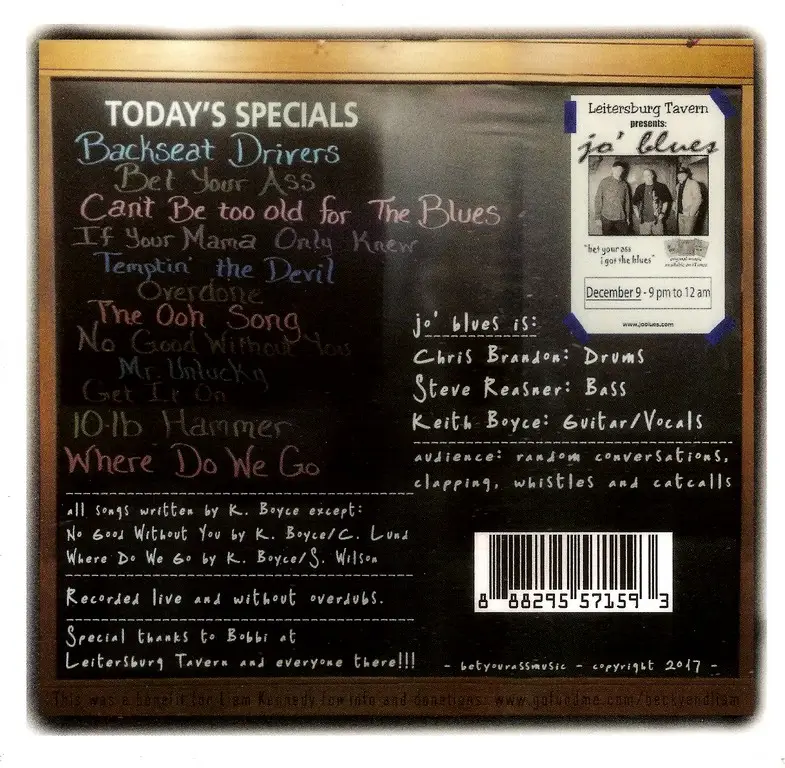 TODAY'S SPECIALS
Backseat Drivers
Bet Your Ass
Can't Be too old for The Blues
If Your Mama Only Knew
Temptin' the Devil
Overdone
The Ooh Song
No Good Without You
Mr. Unlucky
Get It On
10-lb Hammer
Where Do We Go
all songs written by K. Boyce except:
No Good Without You by K. Boyce/C. Lund
Where Do We Go by K. Boyce/S. Wilson
Recorded live and without overdubs.
Special thanks to Bobbi at
Leitersburg Tavern and everyone there!!!
Leitersburg Tavern
presents:
jo' blues
"bet your ass
i got the blues"
original music
available on iTunes
December 9 - 9 pm to 12 am
www.joblues.com
jo' blues is:
Chris Brandon: Drums
Steve Reasner: Bass
Keith Boyce: Guitar/Vocals
audience: random conversations,
clapping, whistles and catcalls
8 88295 57159 3
- betyourassmusic - copyright 2017 -
This was a benefit for Liam Kennedy for info and donations: www.gofundme.com/beckyandliam